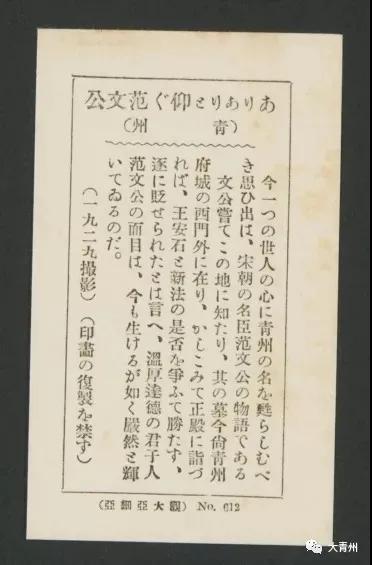 ありありと仰ぐ范文公
(青州)
今一つの世人の心に青州の名を甦らしむべ
き思ひ出は、宋朝の名臣范文公の物語である
文公嘗てこの地に知たり、其の墓今尙青州
府城の西門外に在り、かしこみて正殿に詣づ
れば、王安石と新法の是否を爭ふて勝たす、
逐に貶せられたとは言へ、溫厚達德の君子人
范文公の面目は、今も生けるが如く嚴然と輝
いてゐるのだ。
(一九二九撮影) (印畫の復製を禁ず)
(亞細亞大觀) No. 612
大青州